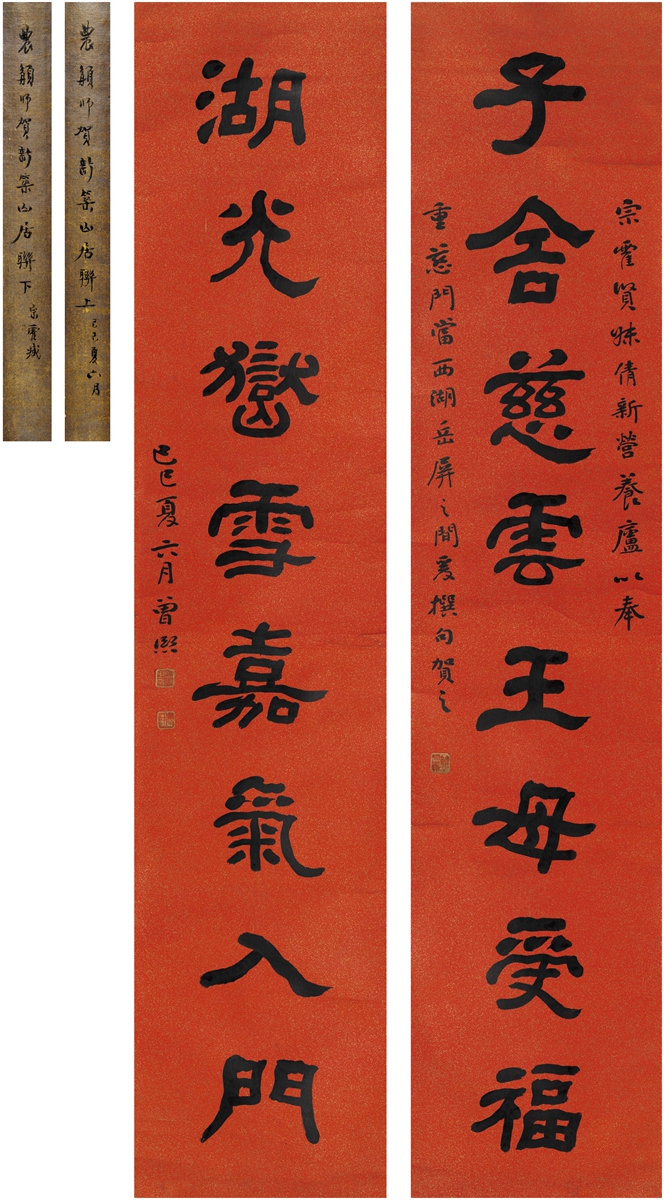 子舍慈雲王母受福
宗霍賢妹倩新營養廬以奉
重慈門當西湖岳屏之間爰撰句賀之
湖光嶽雪嘉氣入門
己巳夏六月曾熙
農髯師賀新築山居聯上 己巳夏六月
農髯師賀新築山居聯下 宗霍藏